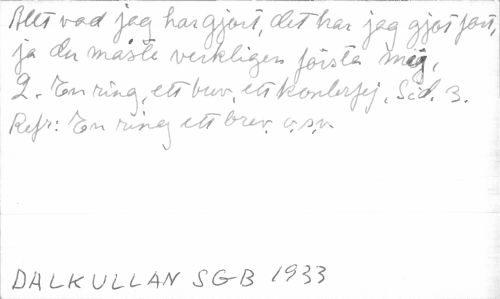 Allt vad jag har gjort, det har jag gjort förr,
ja du måste verkligen förstå mig,
2. En ring, ett brev, ett konterfej, Sid. 3.
Refr: En ring ett brev. o.s.v.
DALKULLAN SGB 1933